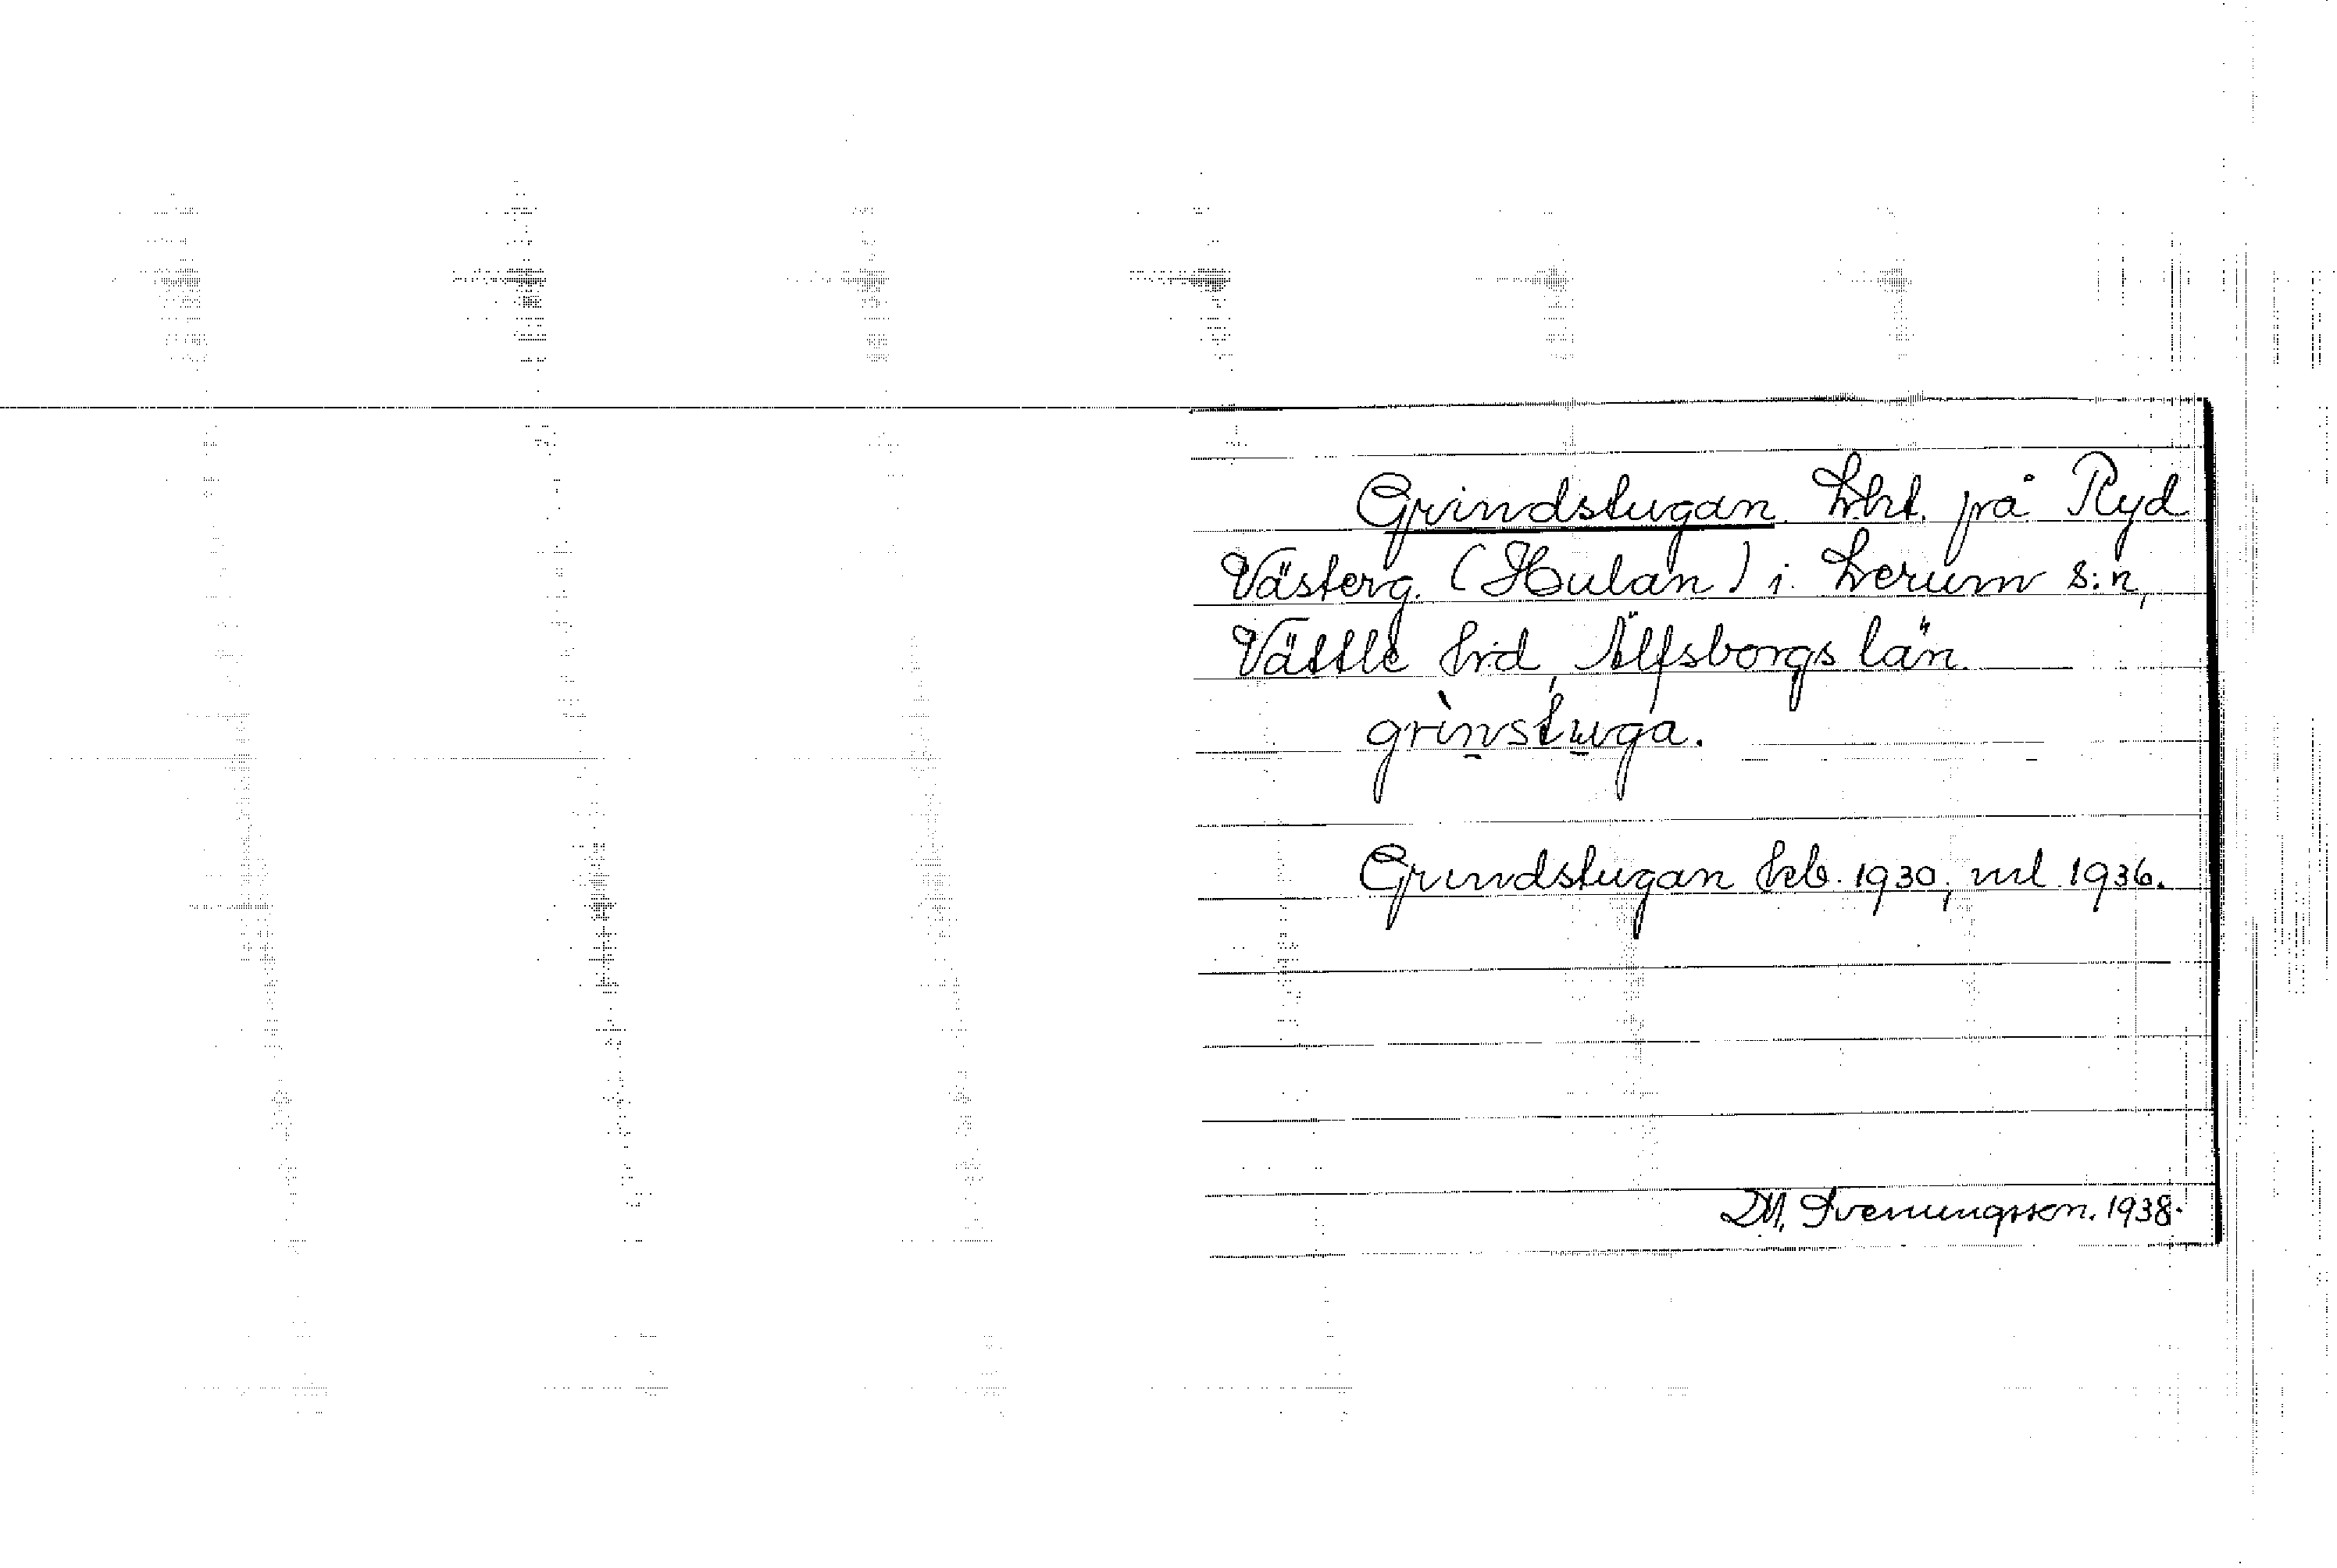 Grindstugan. Lht. på Ryd
Västerg. (Hulan) i Lerum s:n,
Vättle hrd, Älfsborgs län.
grìnstúga.
Grindstugan hfb. 1930, ml 1936.
D.M. Svenungsson. 1938.